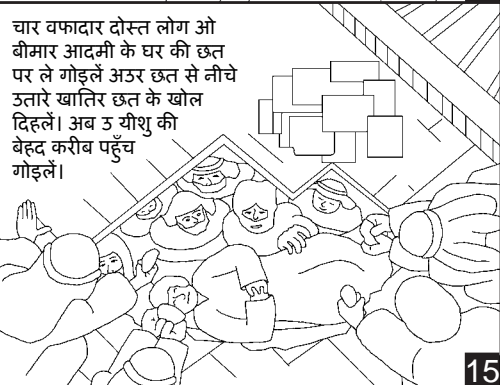 चार वफादार दोस्त लोग ओ
बीमार आदमी के घर की छत
पर ले गोइलें अउर छत से नीचे
उतारे खातिर छत के खोल
दिहलें। अब उ यीशु की
बेहद करीब पहुँच
गोइलें।
15